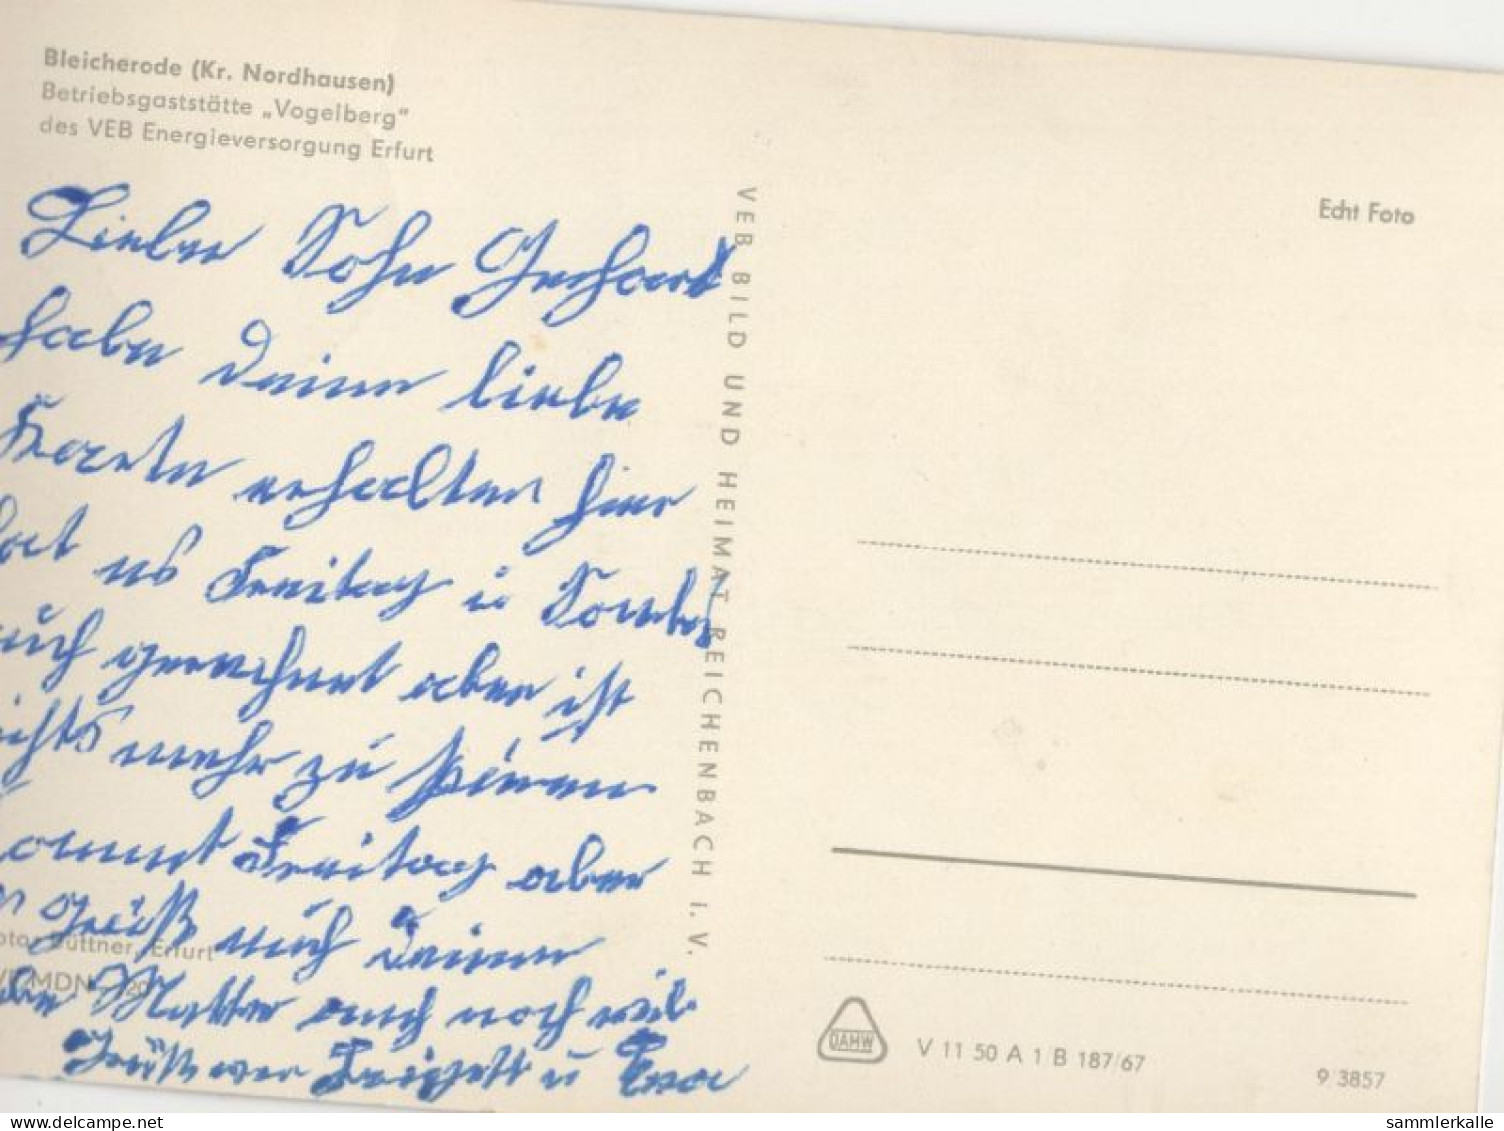 Bleicherode (Kr. Nordhausen)
Betriebsgaststätte „Vogelberg"
des VEB Energieversorgung Erfurt
Lieber Sohn Gerhard
habe Deine liebe
Karte erhalten hier
hat es Freitag u
gerechnet aber ist
nichts mehr zu
kommt Freitag aber
Grüß mich Deine
Mutter auch noch viel
Grüße von u
Büttner, Erfurt
MDN
VEB BILD UND HEIMAT REICHENBACH i. V.
Echt Foto
DAHW
V 11 50 A 1 B 187/67
9/3857
sammlerkalle